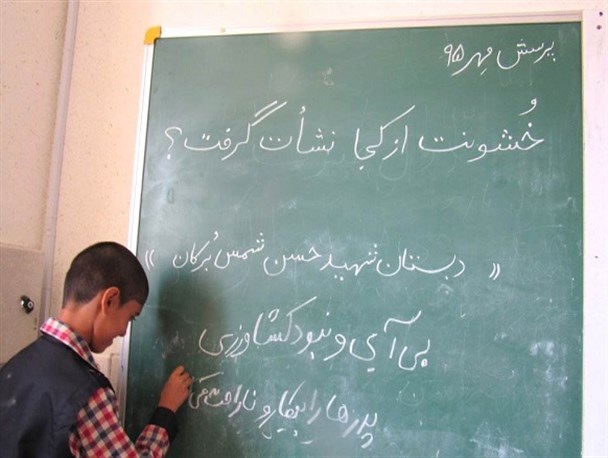 پرسش مِهر ۹۵
خُشونت از کجا نشأت گرفت؟
« دبستان شهید حسن شمس بُرکان »
بی آبی و نبود کشاورزی
پدرها را بیکار و ناراحت می